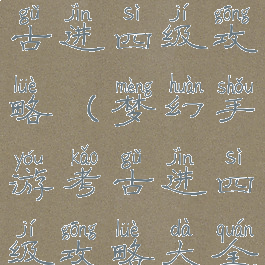 gǔ jìn sì jí gōng
古进四级攻
lüè mèng huàn shǒu
略(梦幻手
yóu kǎo gǔ jìn sì
游考古进四
jí gōng lüè dà quán
级攻略大全